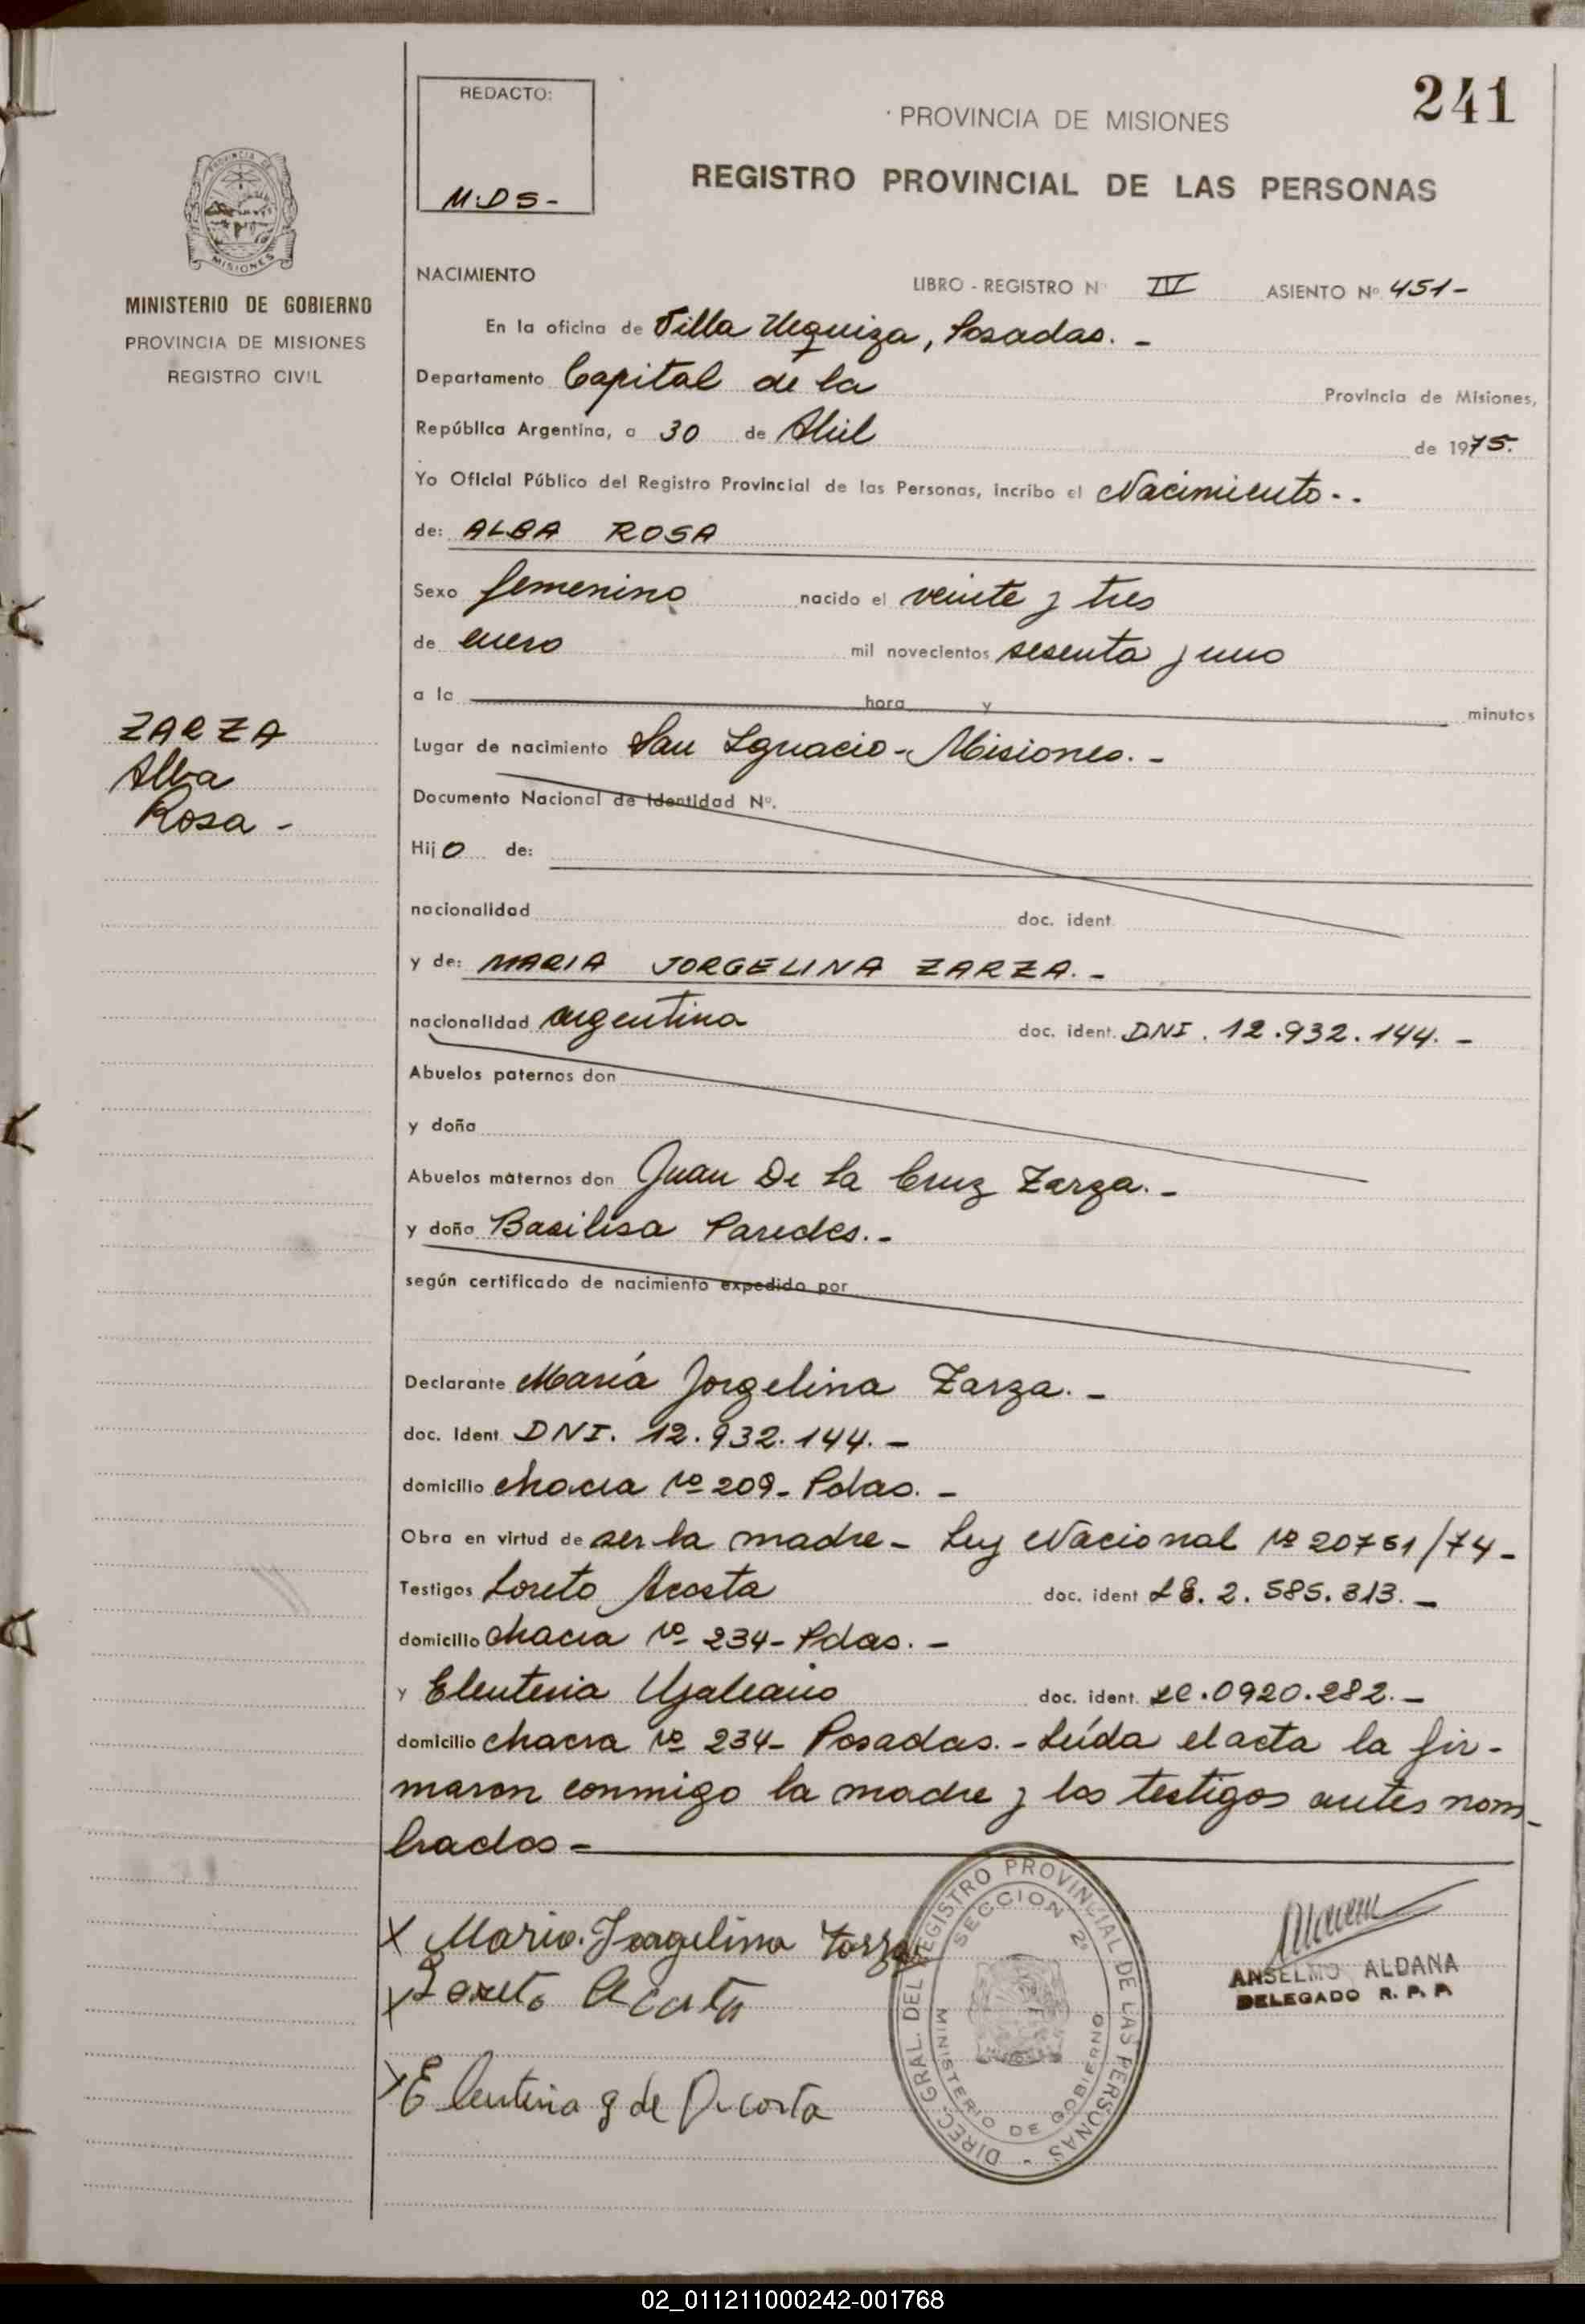 241
REDACTO:
M.D S-
PROVINCIA DE MISIONES
REGISTRO PROVINCIAL DE LAS PERSONAS
PROVINCIA DE
MISIONES
MINISTERIO DE GOBIERNO
PROVINCIA DE MISIONES
REGISTRO CIVIL
NACIMIENTO LIBRO - REGISTRO Nº IV ASIENTO Nº 451-
En la oficina de Villa Urquiza, Posadas. -
Departamento Capital de la Provincia de Misiones,
República Argentina, a 30 de Abril de 1975.
Yo Oficial Público del Registro Provincial de las Personas, incribo el Nacimiento - -
de: ALBA ROSA
Sexo femenino nacido el veinte y tres
de enero mil novecientos sesenta y uno
a la hora y minutos
ZARZA
Alba
Rosa -
Lugar de nacimiento San Ignacio - Misiones. -
Documento Nacional de Identidad Nº.
Hijo de:
nacionalidad doc. ident.
y de: MARIA JORGELINA ZARZA. -
nacionalidad argentina doc. ident. DNI. 12.932.144. -
Abuelos paternos don
y doña
Abuelos maternos don Juan De la Cruz Zarza. -
y doña Basilisa Paredes. -
según certificado de nacimiento expedido por
Declarante María Jorgelina Zarza. -
doc. Ident DNI. 12.932.144. -
domicilio chacra Nº 209 - Pdas. -
Obra en virtud de ser la madre - Ley Nacional Nº 20751/74 -
Testigos Loreto Acosta doc. ident LE. 2.585.313. -
domicilio chacra Nº 234 - Pdas. -
y Eleuteria doc. ident. LC. 0920.282. -
domicilio chacra Nº 234 - Posadas. - Leída el acta la fir-
maron conmigo la madre y los testigos antes nom-
brados -
X Maria Jorgelina Zarza
X Loreto Acosta
X Eleuteria g de Acosta
DIREC. GRAL. DEL REGISTRO PROVINCIAL DE LAS PERSONAS -
SECCION 2º
MINISTERIO DE GOBIERNO
ANSELMO ALDANA
DELEGADO R. P. P.
02_011211000242-001768